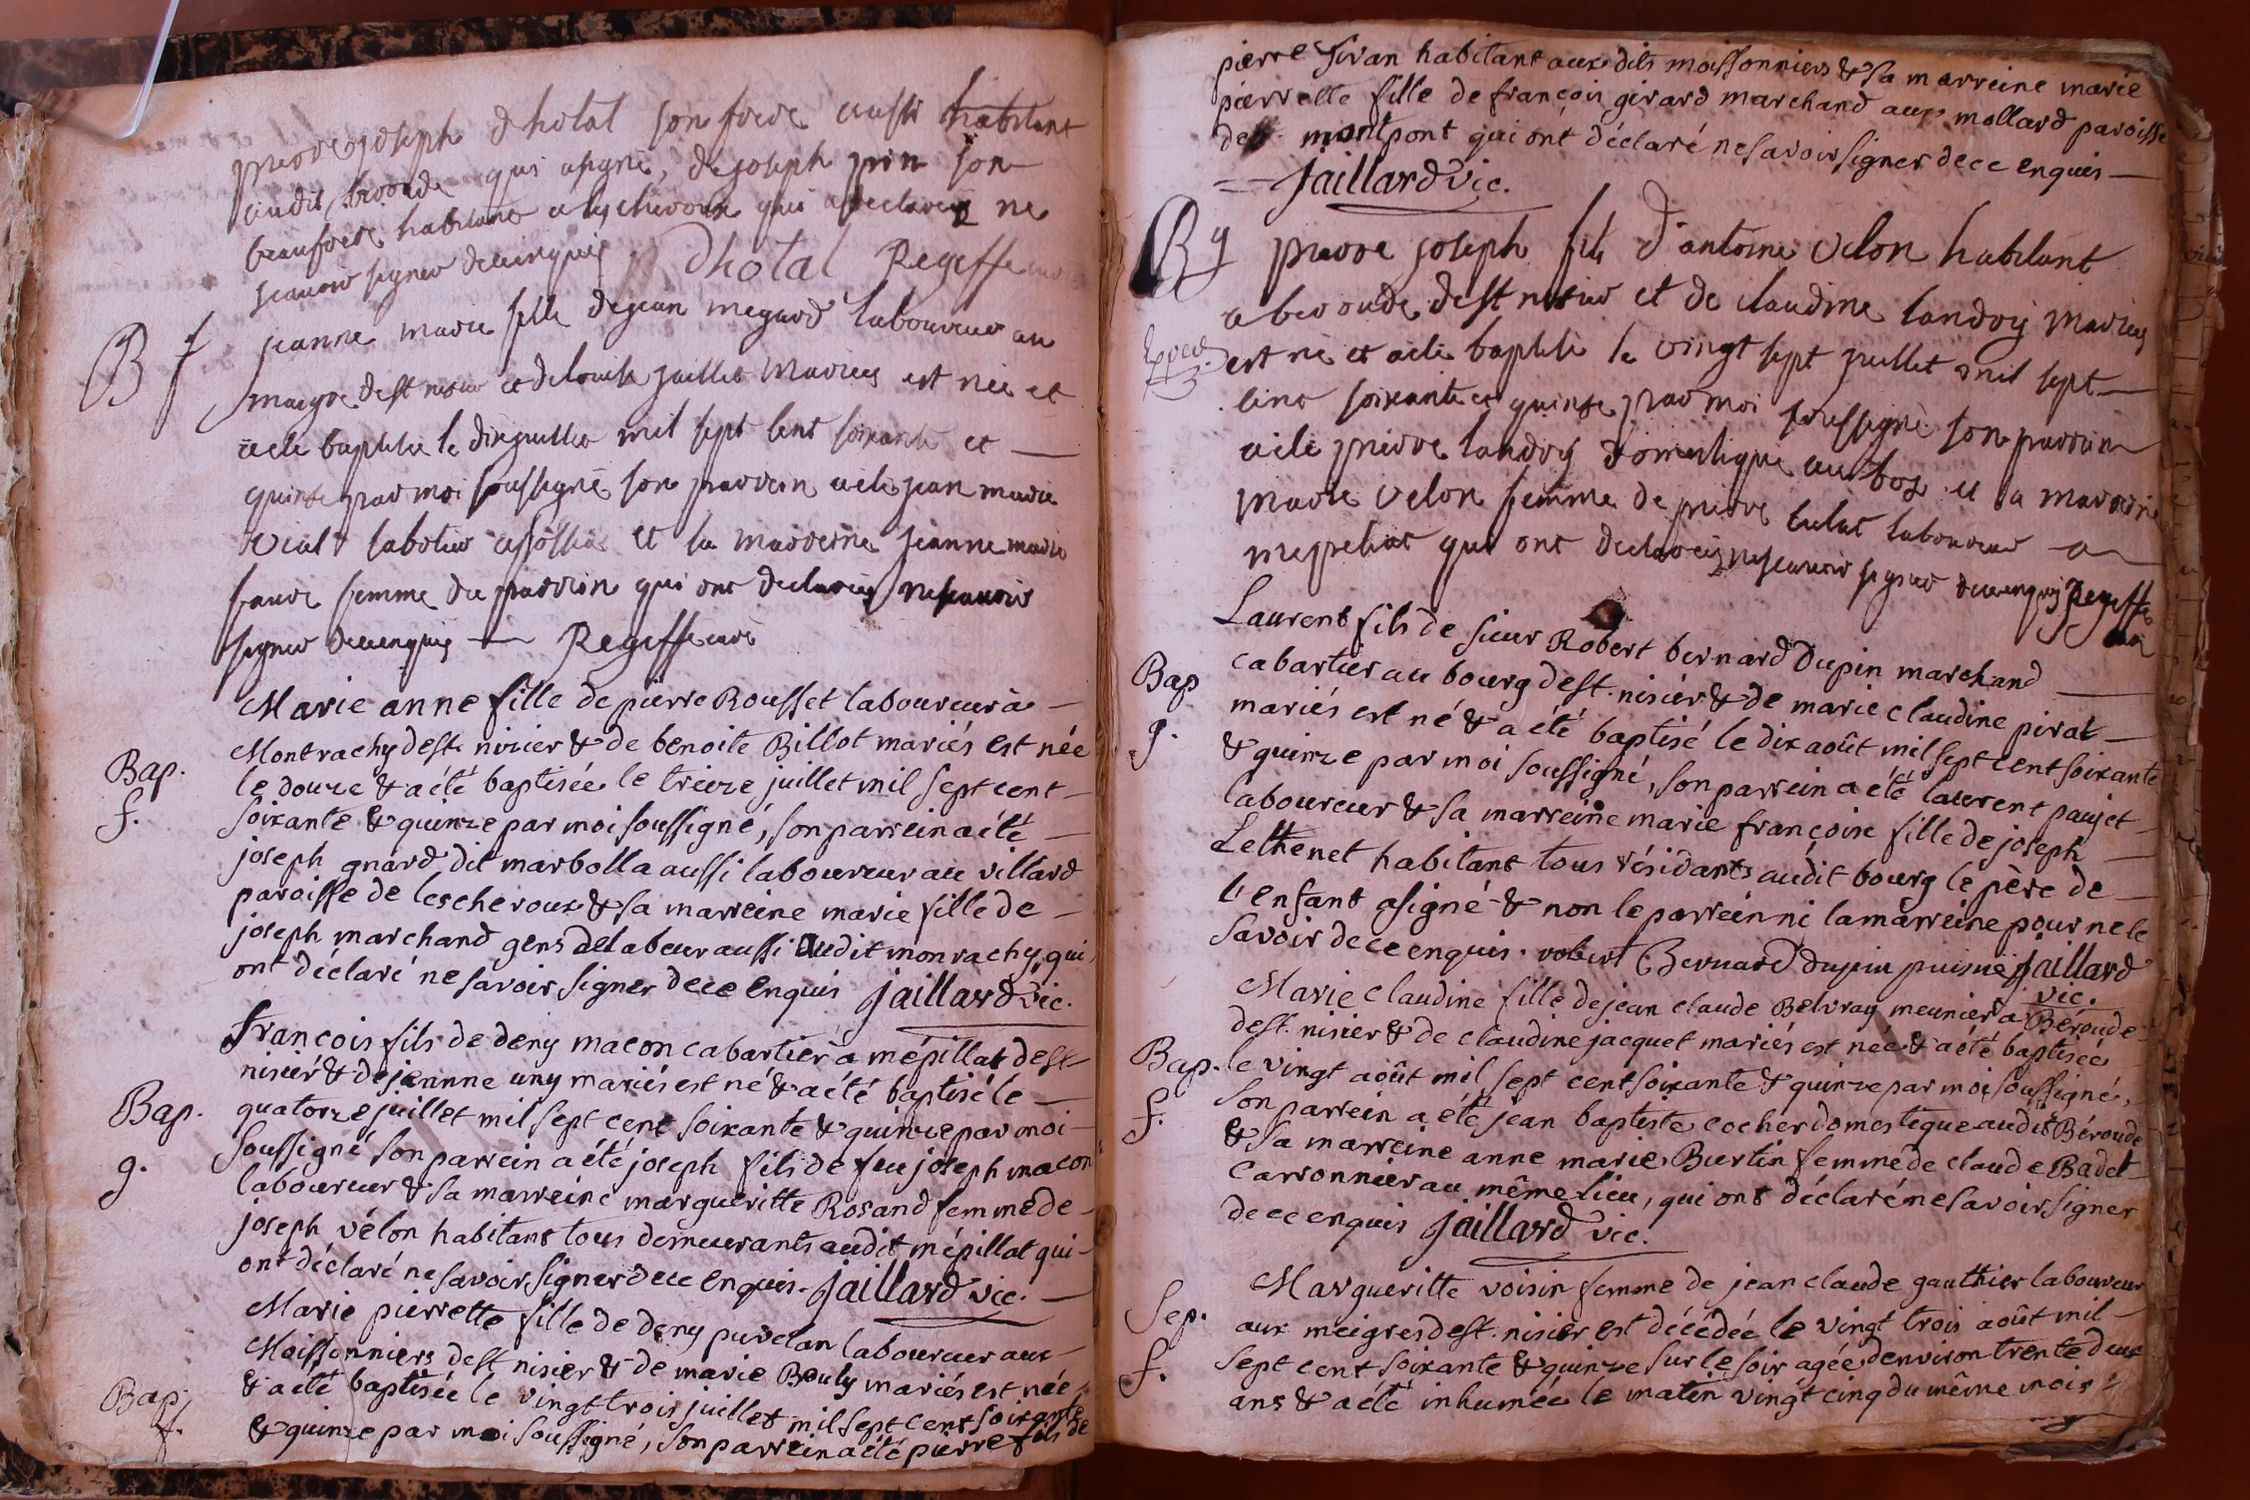 pierre joseph dhotal son frere aussi habitant
audit broude qui a signé, de joseph pin son
beaufrere habitant a lescheroux qui a declarez ne
scavoir signer de ce enquis dhotal Regeffe curé
B f jeanne marie fille de jean megard laboureur au
maigre de st nisier et de louise jaillet mariez est née et
a ete baptisée le dix juillet mil sept cent soixante et —
quinze par moi soussigné son parrein a ete jean marie
vial sabotier et sa marreine jeanne marie
favre femme du parrein qui ont declarez ne scavoir
signer de ce enquis — Regeffe curé
Marie anne fille de pierre Rousset laboureur à —
Montrachy de st. nizier & de benoite Billot mariés est née
Bap. le douze & a été baptisée le treize juillet mil sept cent —
f. soixante & quinze par moi soussigné, son parrein a été —
joseph gnard dit marbolla aussi laboureur au villard
paroisse de lescheroux & sa marreine marie fille de —
joseph marchand gens de labeur aussi audit monrachy, qui
ont déclaré ne savoir signer de ce enquis jaillard vic.
francois fils de deny macon cabartier a mépillat de st
nisier & de jeannne uny mariés est né & a été baptisé le —
Bap. quatorze juillet mil sept cent soixante & quinze par moi —
g. soussigné son parrein a été joseph fils de feu joseph macon
laboureur & sa marreine margueritte Rosand femme de —
joseph vélon habitant tous demeurants audit mépillat qui —
ont déclaré ne savoir signer de ce enquis. jaillard vic. —
Marie pierrette fille de deny puvelan laboureur aux —
Moissonniers de st nisier & de marie Bouly mariés est née
Bap. & a été baptisée le vingt trois juillet mil sept cent soixante
f. & quinze par moi soussigné, son parrein a été pierre fils de
pierre sivan habitant aux dits moissonniers & sa marreine marie
pierrette fille de françois girard marchand aux mollard paroisse
de montpont qui ont déclaré ne savoir signer de ce enquis —
= jaillard vic.
B g pierre joseph fils d'antoine velon habitant
a beroude de st nisier et de claudine landry mariez
est né et a ete baptisé le vingt sept juillet mil sept —
cent soixante et quinze par moi soussigné son parrein
a ete pierre landry domestique au bos et sa marreine
marie velon femme de pierre laboureur a
mepeliat qui ont declarez ne scavoir signer de ce enquis Regeffe
curé
Laurent fils de sieur Robert bernard Dupin marchand —
Bap cabartier au bourg de st. nisier & de marie claudine pirat —
g. mariés est né & a été baptisé le dix août mil sept cent soixante
& quinze par moi soussigné, son parrein a été laurent paujet —
laboureur & sa marreine marie françoise fille de joseph —
Lethenet habitant tous résidants audit bourg le père de —
l'enfant a signé & non le parrein ni la marreine pour ne le
savoir de ce enquis. robert Bernard dupin puisné jaillard
vic.
Marie claudine fille de jean claude Belvray meunier a Béroude
de st. nisier & de claudine jacquet mariés est née & a été baptisée
Bap. le vingt août mil sept cent soixante & quinze par moi soussigné,
f. son parrein a été jean baptiste cocher domestique audit Béroude
& sa marreine anne marie Burtin femme de claude Badet
carronnier au même lieu, qui ont déclaré ne savoir signer
de ce enquis jaillard vic.
Margueritte voisin femme de jean claude gauthier laboureur
Sep. aux meigres de st. nisier est décédée le vingt trois août mil —
f. sept cent soixante & quinze sur le soir agée d'environ trente deux
ans & a été inhumée le matin vingt cinq du même mois =